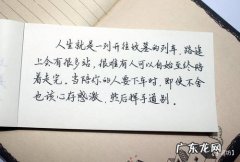 人生就是一列开往坟墓的列车，路途
上会有很多站，很难有人可以自始至终陪
着走完。当陪你的人要下车时，即使不舍
也该心存感激，然后挥手道别。
广龙网